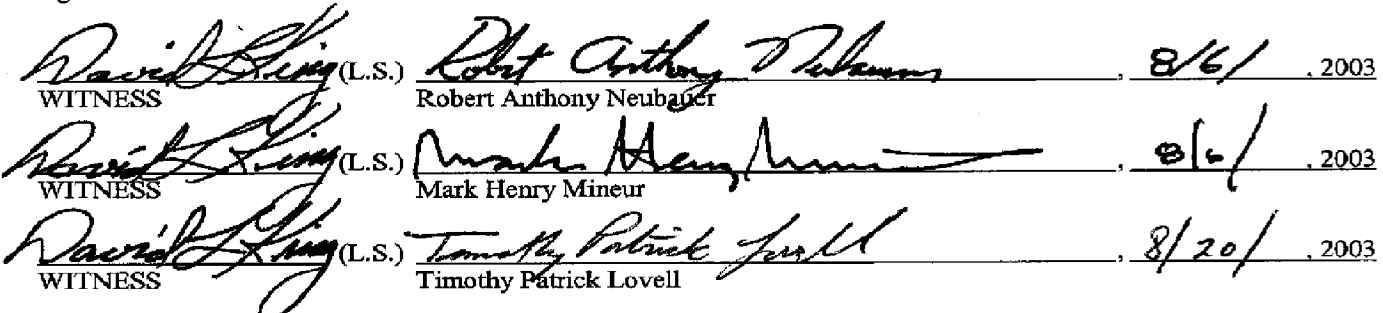 David L King (L.S.) Robert Anthony Neubauer, 8/6/, 2003
WITNESS Robert Anthony Neubauer
David L King (L.S.) Mark Henry Mineur, 8/6/, 2003
WITNESS Mark Henry Mineur
David L King (L.S.) Timothy Patrick Lovell, 8/20/, 2003
WITNESS Timothy Patrick Lovell